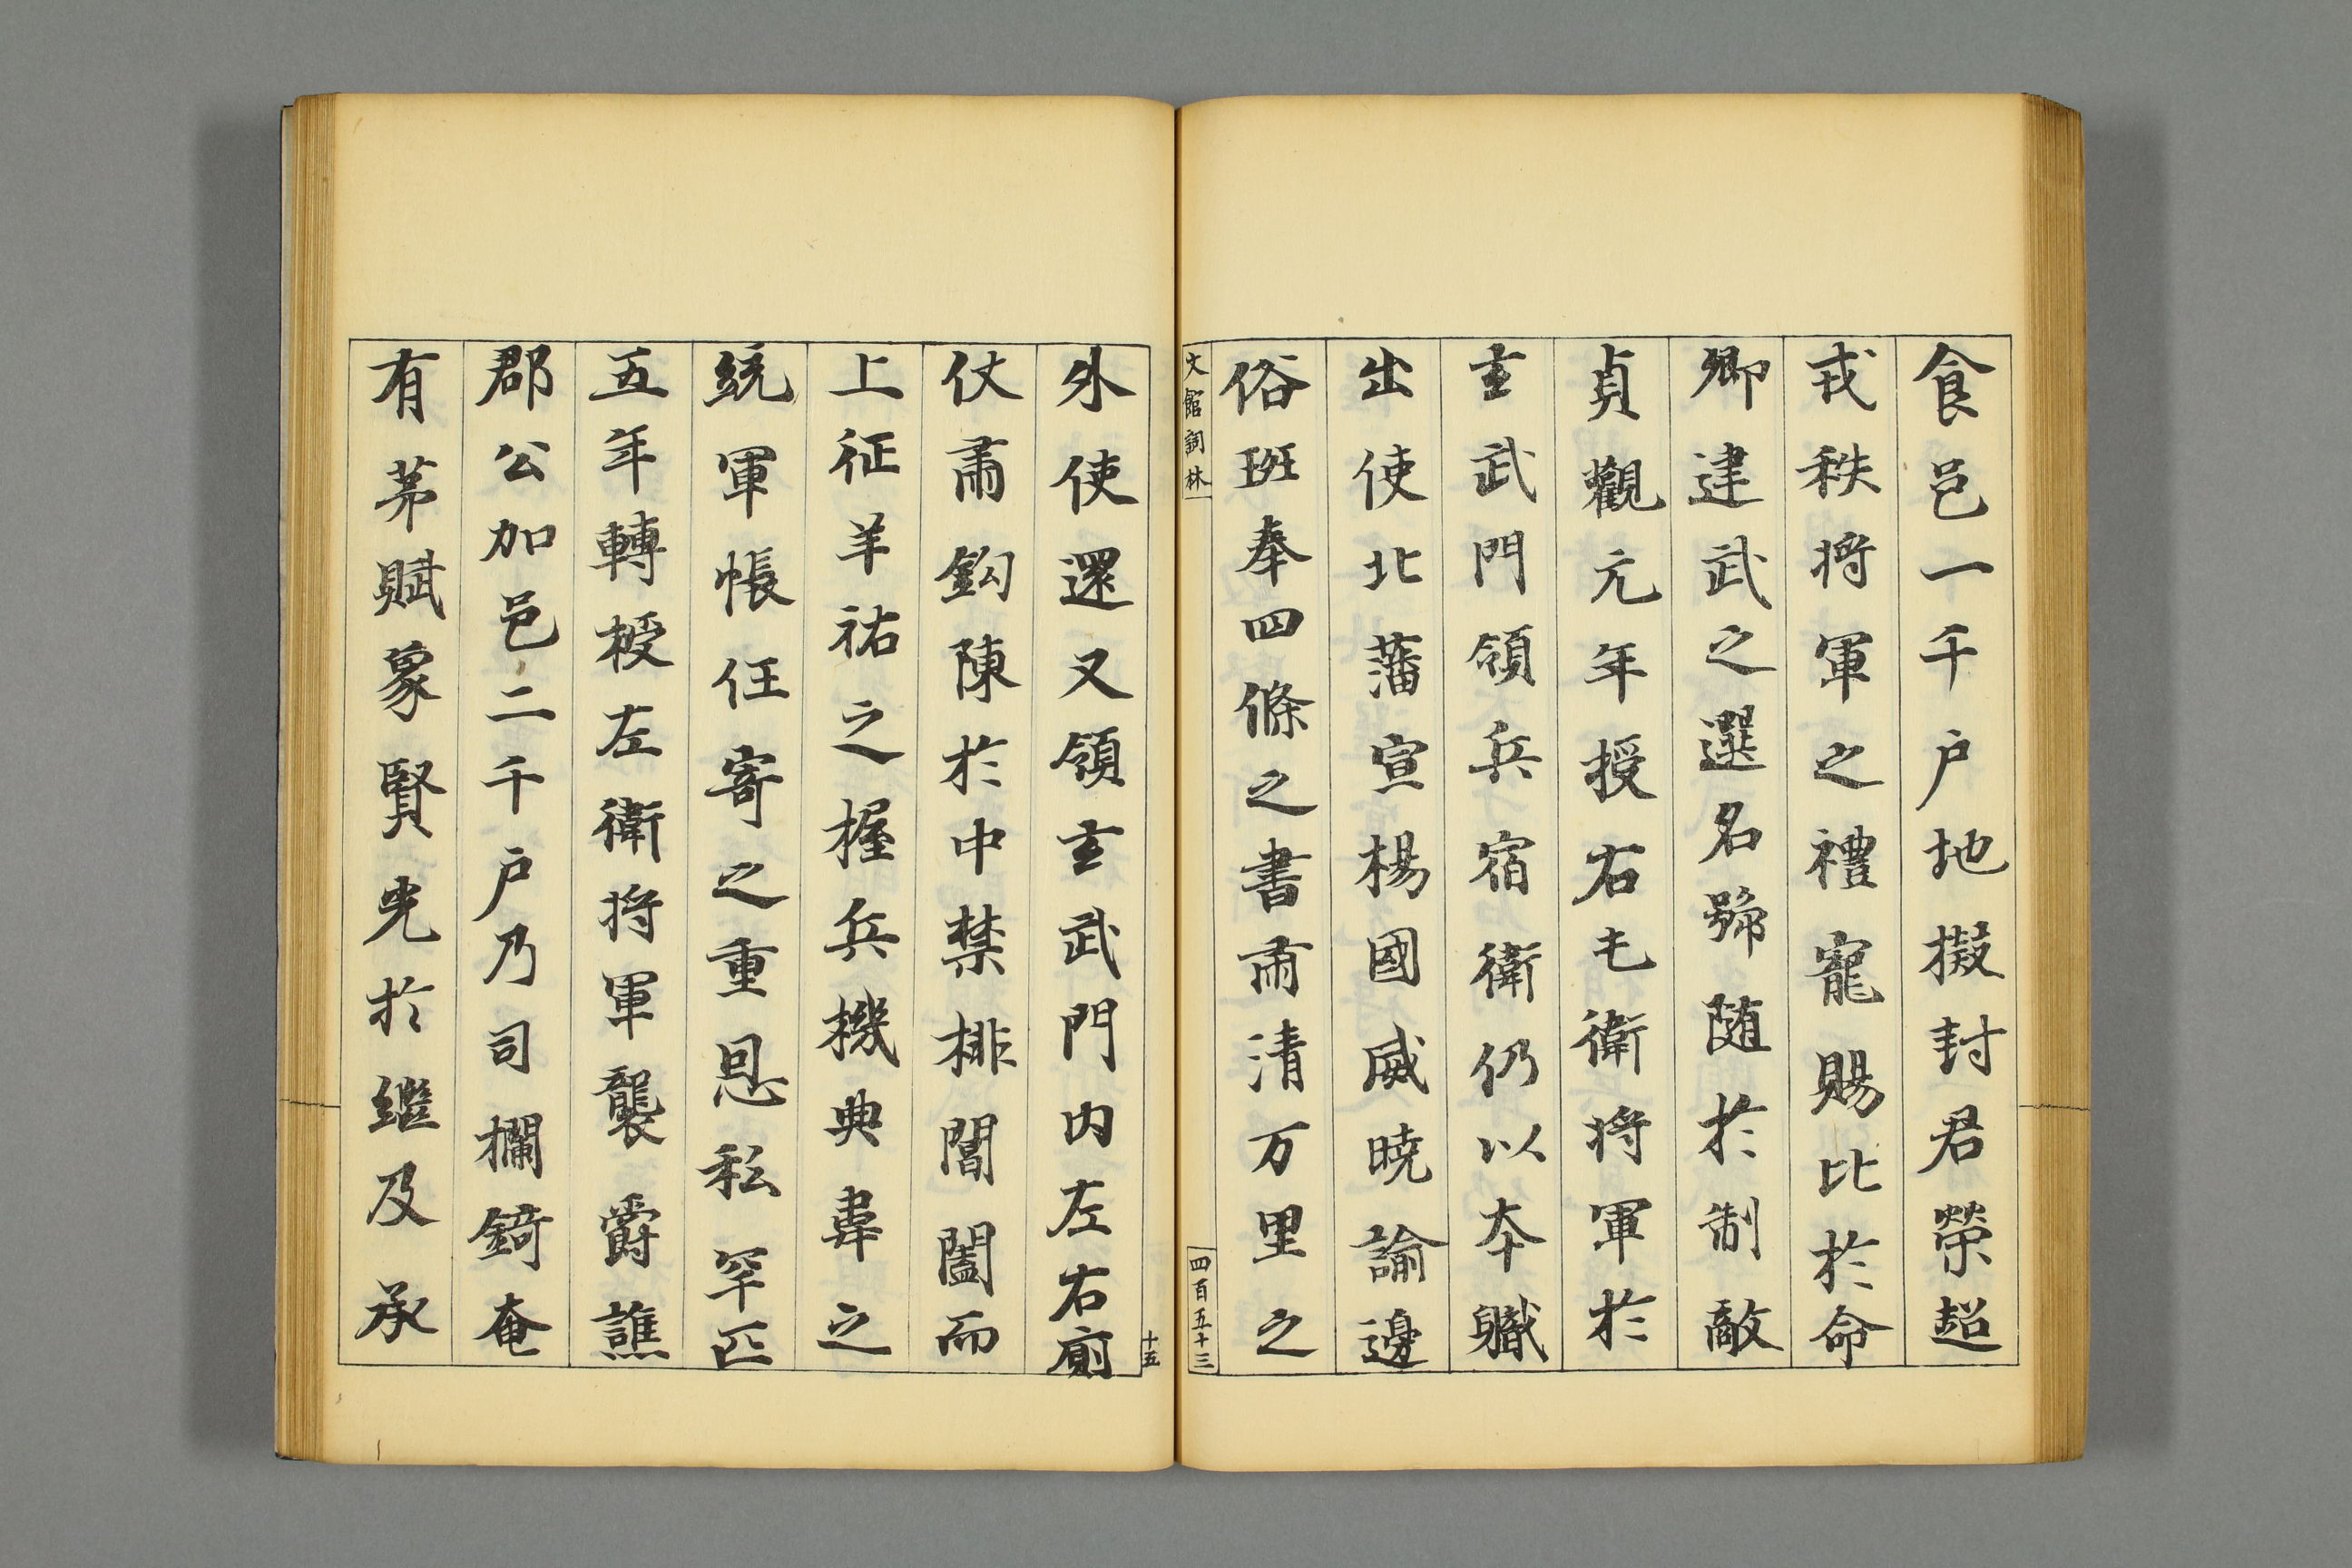 食邑一千户地擬封君榮超
戎秩将軍之禮寵賜比於命
卿建武之選名号随於制敵
貞觀元年授右屯衛将軍於
玄武門領兵宿衛仍以本職
出使北藩宣楊國威曉諭邊
俗班奉四條之書肅清万里之
文館詞林
四百五十三
十五
外使還又領玄武門内左右廂
仗肅鈎陳於中禁排閶闔而
上征羊祐之握兵機典韋之
統軍帳任寄之重恩私罕匹
五年轉授左衛将軍襲爵譙
郡公加邑二千户乃司欄錡奄
有茅賦象賢光於繼及承